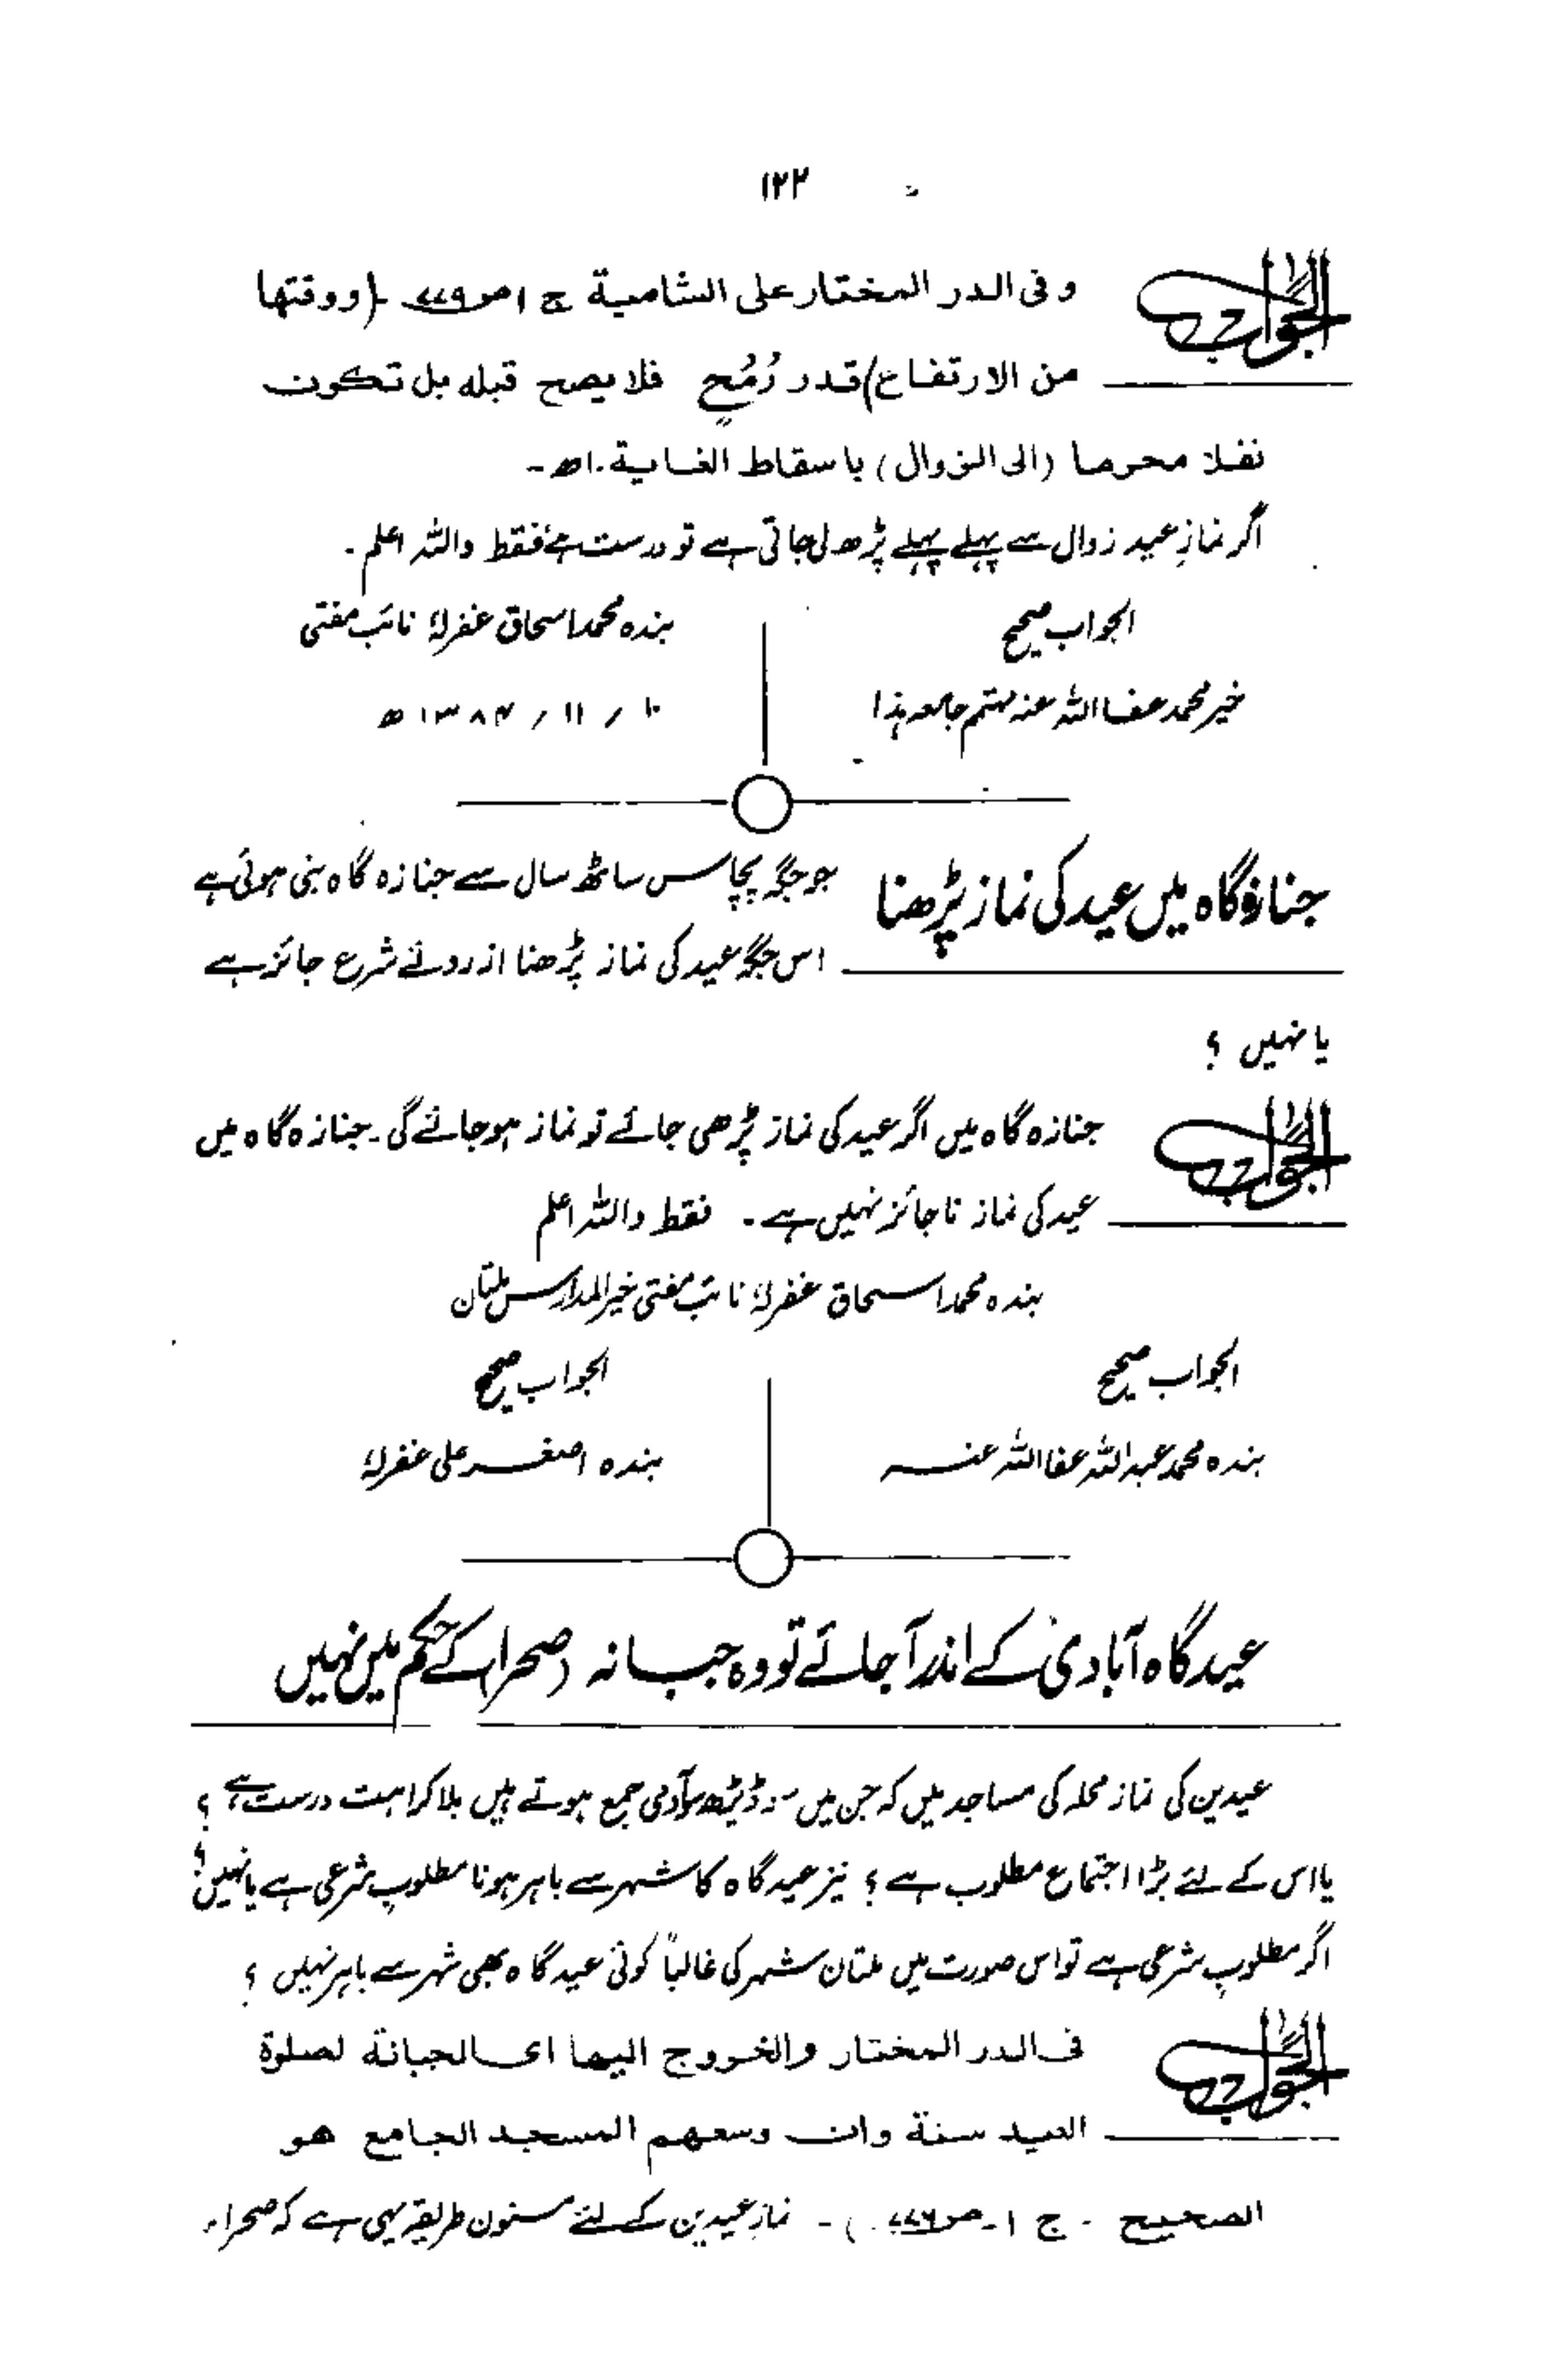 ۱۲۲
الجواب وفی الدر المختار علی الشامیۃ ج ۱ ص۷۷۹ ۔ (ووقتھا
من الارتفاع) قدر رُمْحٍ فلا یصح قبلہ بل تکون
نفلا محرما (الی الزوال) باسقاط الغایۃ ۔ اھ ۔
اگر نمازِ عید زوال سے پہلے پہلے پڑھ لی جاتی ہے تو درست ہے فقط واللہ اعلم ۔
الجواب صحیح
بندہ محمد اسحاق غفرلہٗ نائب مفتی
خیر محمد عفا اللہ عنہ مہتمم جامعہ ہٰذا
۱۰ / ۱۱ / ۱۳۸۴ ھ
جنازہ گاہ میں عید کی نماز پڑھنا
جو جگہ پچاس ساٹھ سال سے جنازہ گاہ بنی ہوئی ہے
اس جگہ عید کی نماز پڑھنا از روئے شرع جائز ہے
یا نہیں ؟
الجواب جنازہ گاہ میں اگر عید کی نماز پڑھی جائے تو نماز ہو جائے گی ۔ جنازہ گاہ میں
عید کی نماز ناجائز نہیں ہے ۔ فقط واللہ اعلم
بندہ محمد اسحاق غفرلہٗ نائب مفتی خیر المدارس ملتان
الجواب صحیح
الجواب صحیح
بندہ محمد عبد اللہ عفا اللہ عنہ
بندہ اصغر علی غفرلہٗ
عیدگاہ آبادی کے اندر آجائے تو وہ جبانہ (صحرا) کے حکم میں نہیں
عیدین کی نماز محلہ کی مساجد میں کہ جن میں سو ڈیڑھ سو آدمی جمع ہوتے ہیں بلا کراہت درست ہے ؟
یا اس کے لئے بڑا اجتماع مطلوب ہے ؟ نیز عیدگاہ کا شہر سے باہر ہونا مطلوب شرعی ہے یا نہیں ؟
اگر مطلوب شرعی ہے تو اس صورت میں ملتان شہر کی غالباً کوئی عیدگاہ بھی شہر سے باہر نہیں ؟
الجواب فی الدر المختار والخروج الیھا ای الجبانۃ لصلوۃ
العید سنۃ وان وسعھم المسجد الجامع ھو
الصحیح ۔ ج ۱ ۔ ص۷۷۶ ) ۔ نماز عیدین کے لئے مسنون طریقہ یہی ہے کہ صحراء